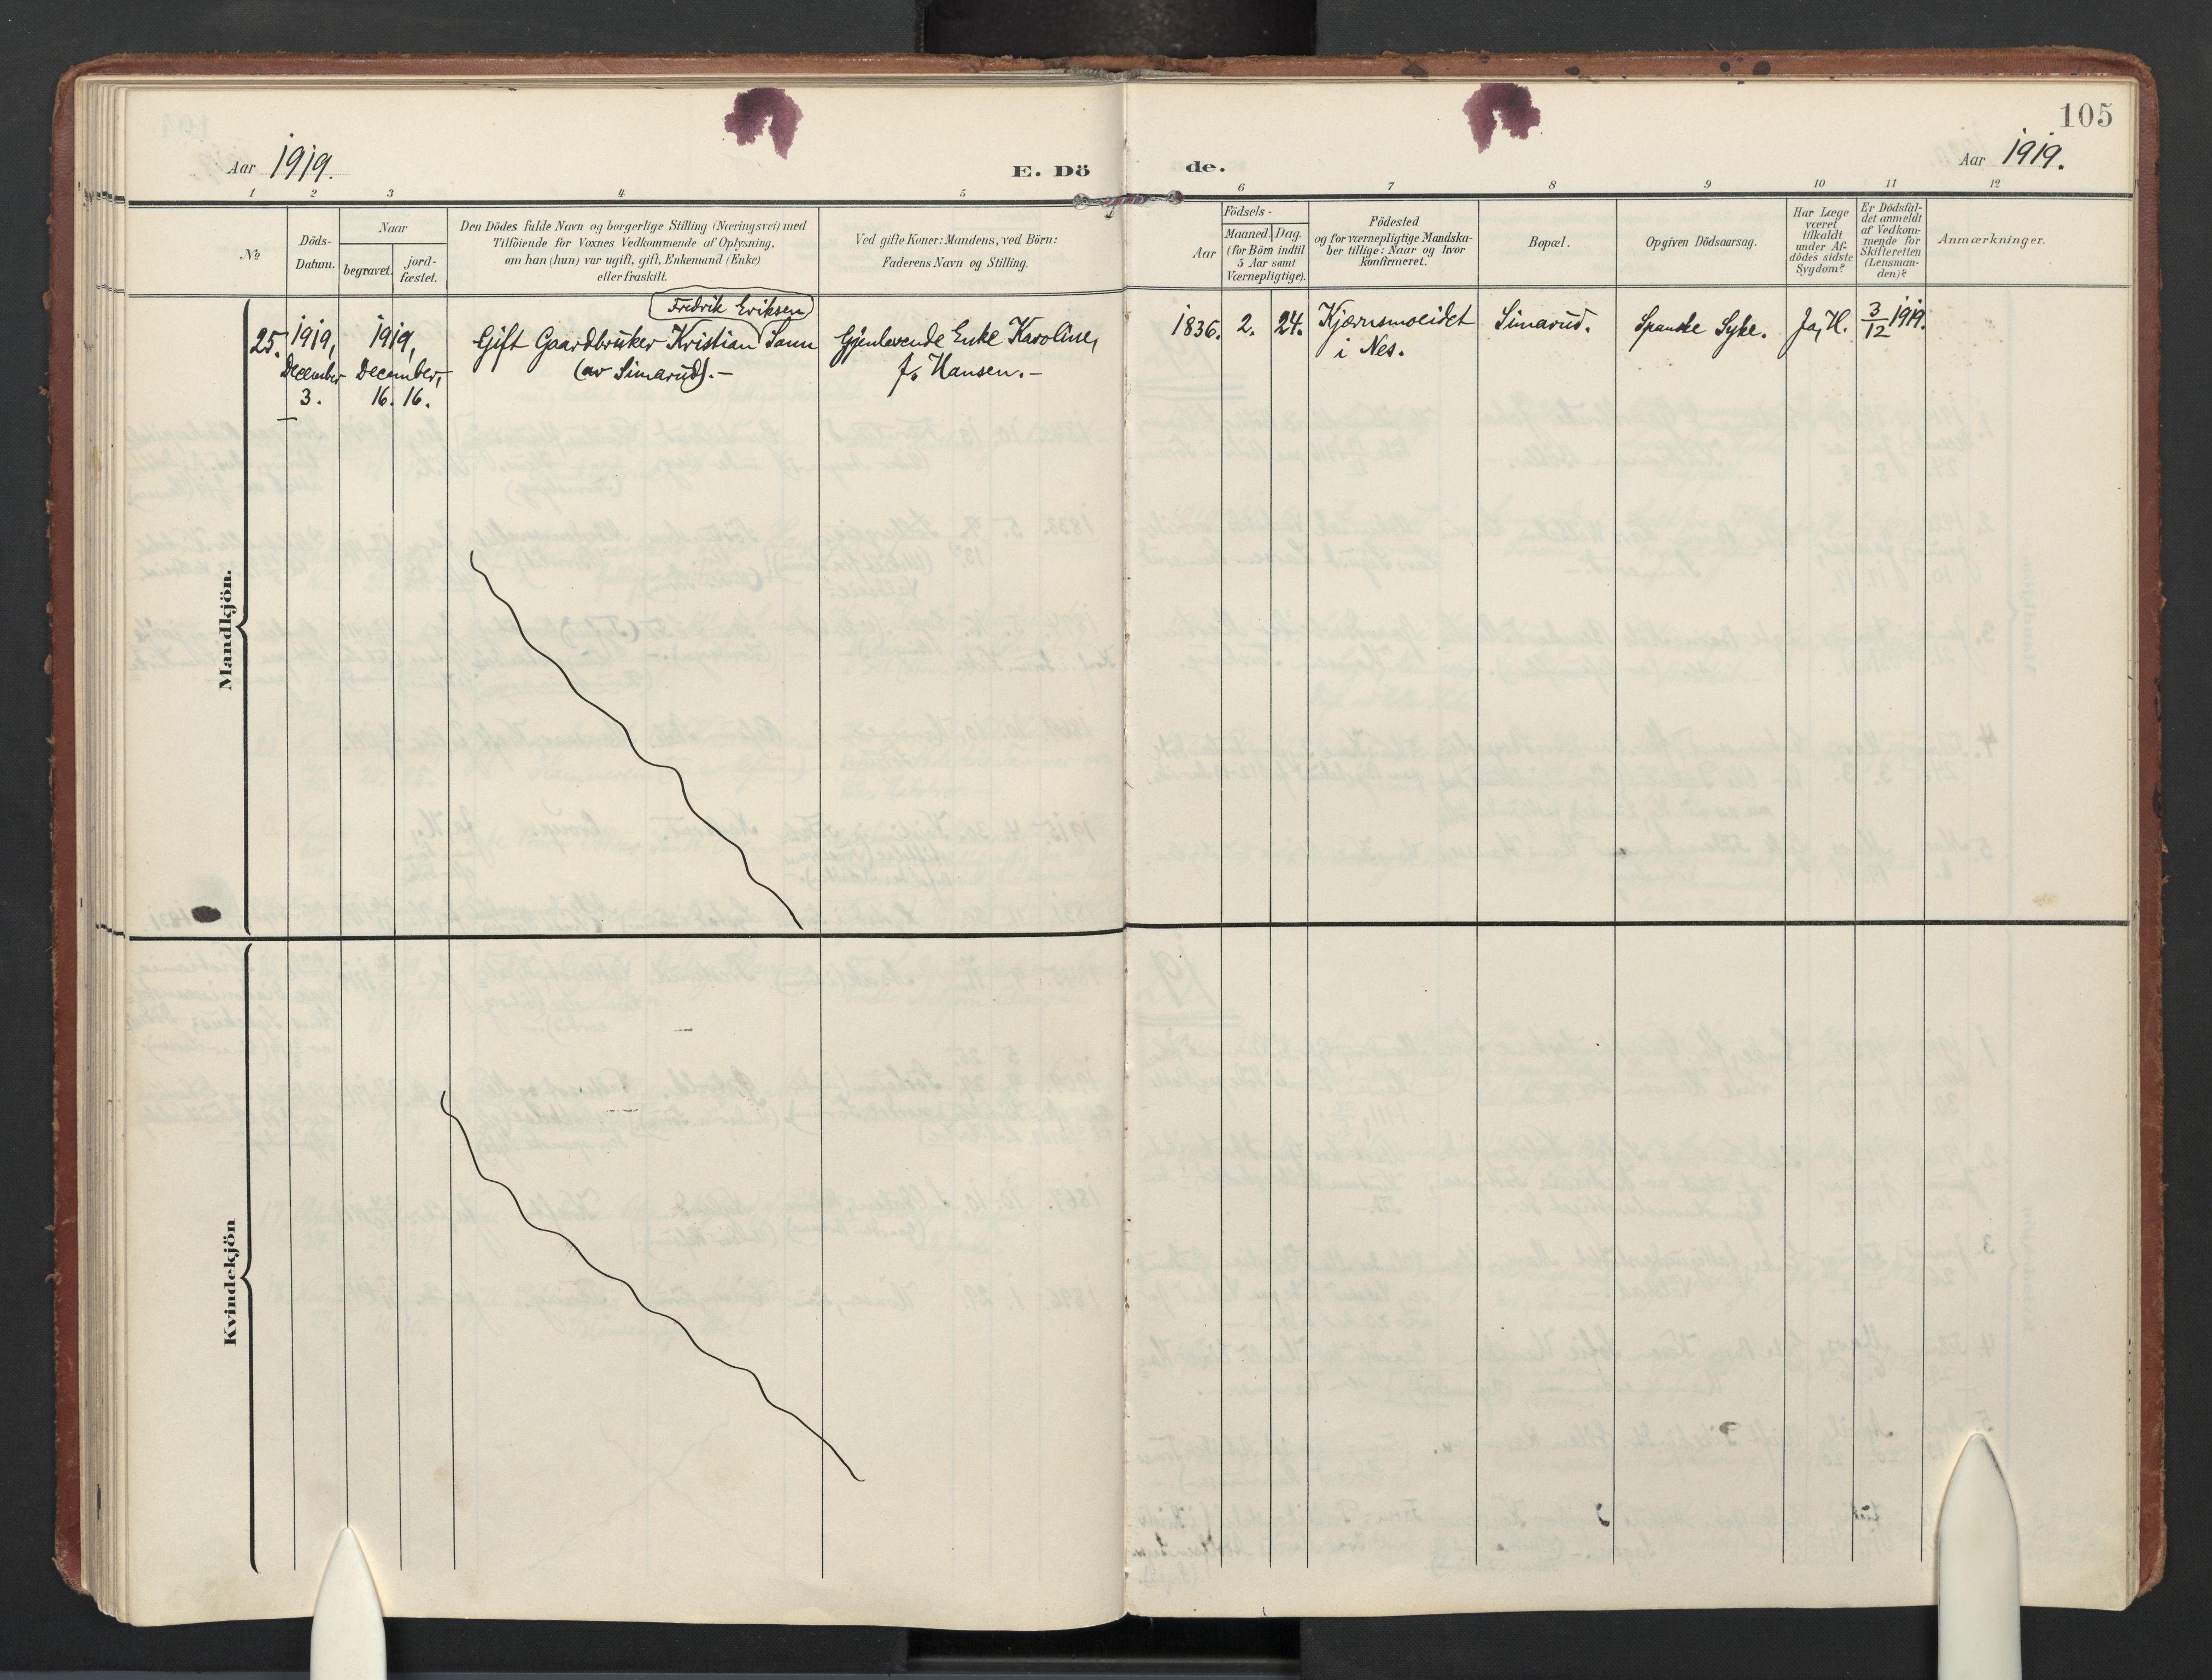 105
Aar 1919.
E. Dö de.
Aar 1919.
1 2 3 4 5 6 7 8 9 10 11 12
No
Döds-
Datum.
Naar
begravet.
jord-
fæstet.
Den Dödes fulde Navn og borgerlige Stilling (Næringsvei) med
Tilföiende for Voxnes Vedkommende af Oplysning,
om han (hun) var ugift, gift, Enkemand (Enke)
eller fraskilt.
Ved gifte Koner: Mandens, ved Börn:
Faderens Navn og Stilling.
Födsels-
Aar
Maaned.
Dag.
(for Börn indtil
5 Aar samt
Værnepligtige).
Födested
og for værnepligtige Mandska-
ber tillige: Naar og hvor
konfirmeret.
Bopæl.
Opgiven Dödsaarsag.
Har Læge
været
tilkaldt
under Af-
dödes sidste
Sygdom?
Er Dödsfal-
det anmeldt
af Vedkom-
mende for
Skifteretten
(Lensman-
den)?
Anmærkninger.
Mandkjön.
25.
1919,
December
3.
1919,
December,
16. 16.
Fredrik Eriksen
Gift Gaardbruker Kristian Sann
(av Simarud).-
Gjenlevende Enke Karoline,
f. Hansen.-
1836. 2. 24.
Kjærnsmoeidet
i Nes.
Simarud.
Spanske Syke.
Ja, H.
3/12 1919.
Kvindekjön